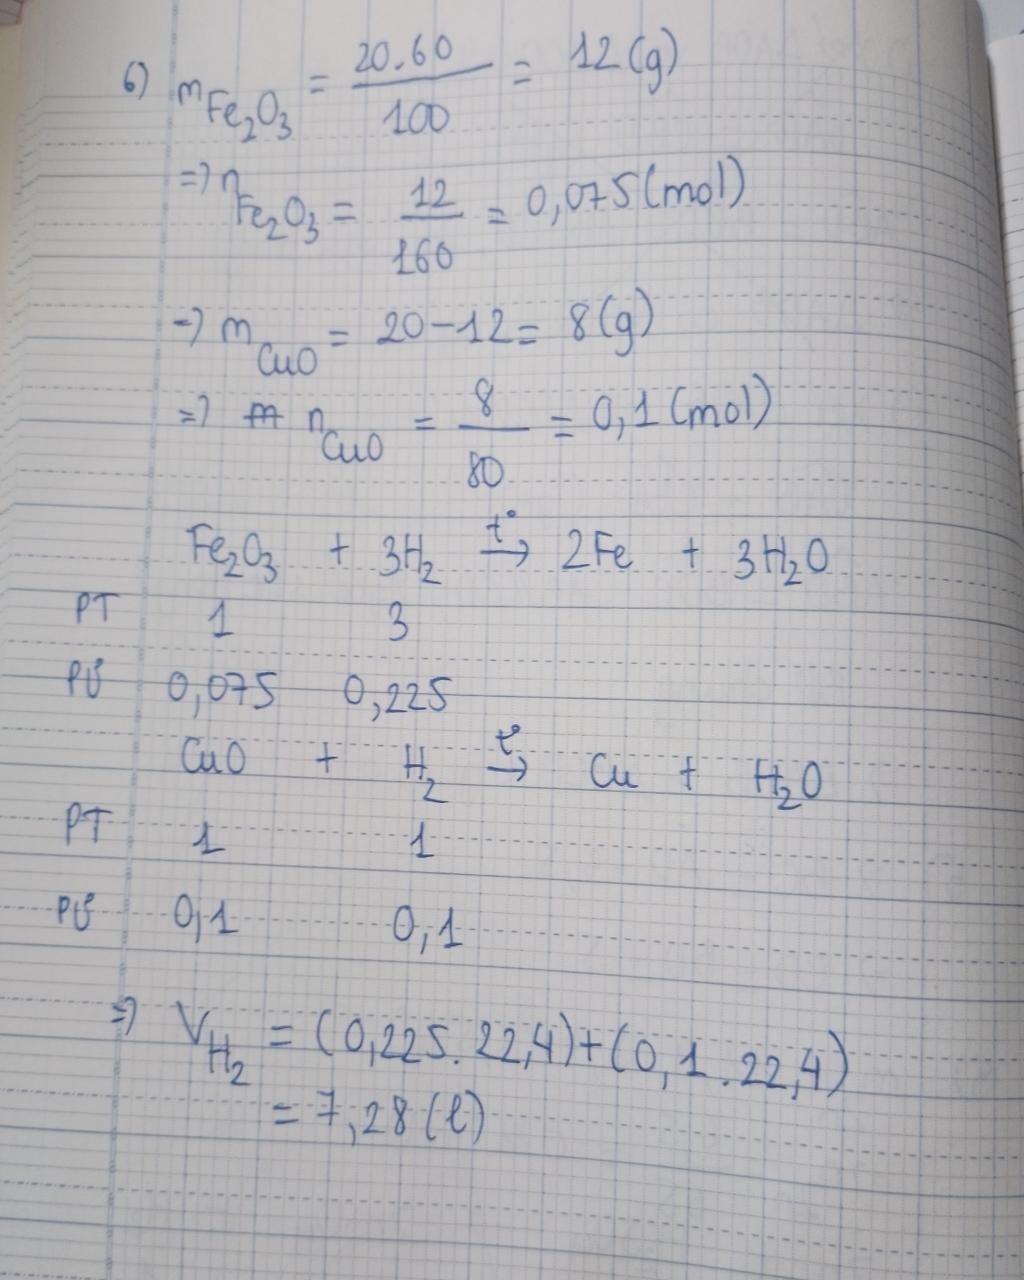 6) mFe₂O₃ = 20.60/100 = 12(g)
=> nFe₂O₃ = 12/160 = 0,075(mol)
=> mCuO = 20-12 = 8(g)
=> nCuO = 8/80 = 0,1(mol)
Fe₂O₃ + 3H₂ →t° 2Fe + 3H₂O
PT 1 3
PƯ 0,075 0,225
CuO + H₂ →t° Cu + H₂O
PT 1 1
PƯ 0,1 0,1
=> VH₂ = (0,225.22,4)+(0,1.22,4)
= 7,28(l)